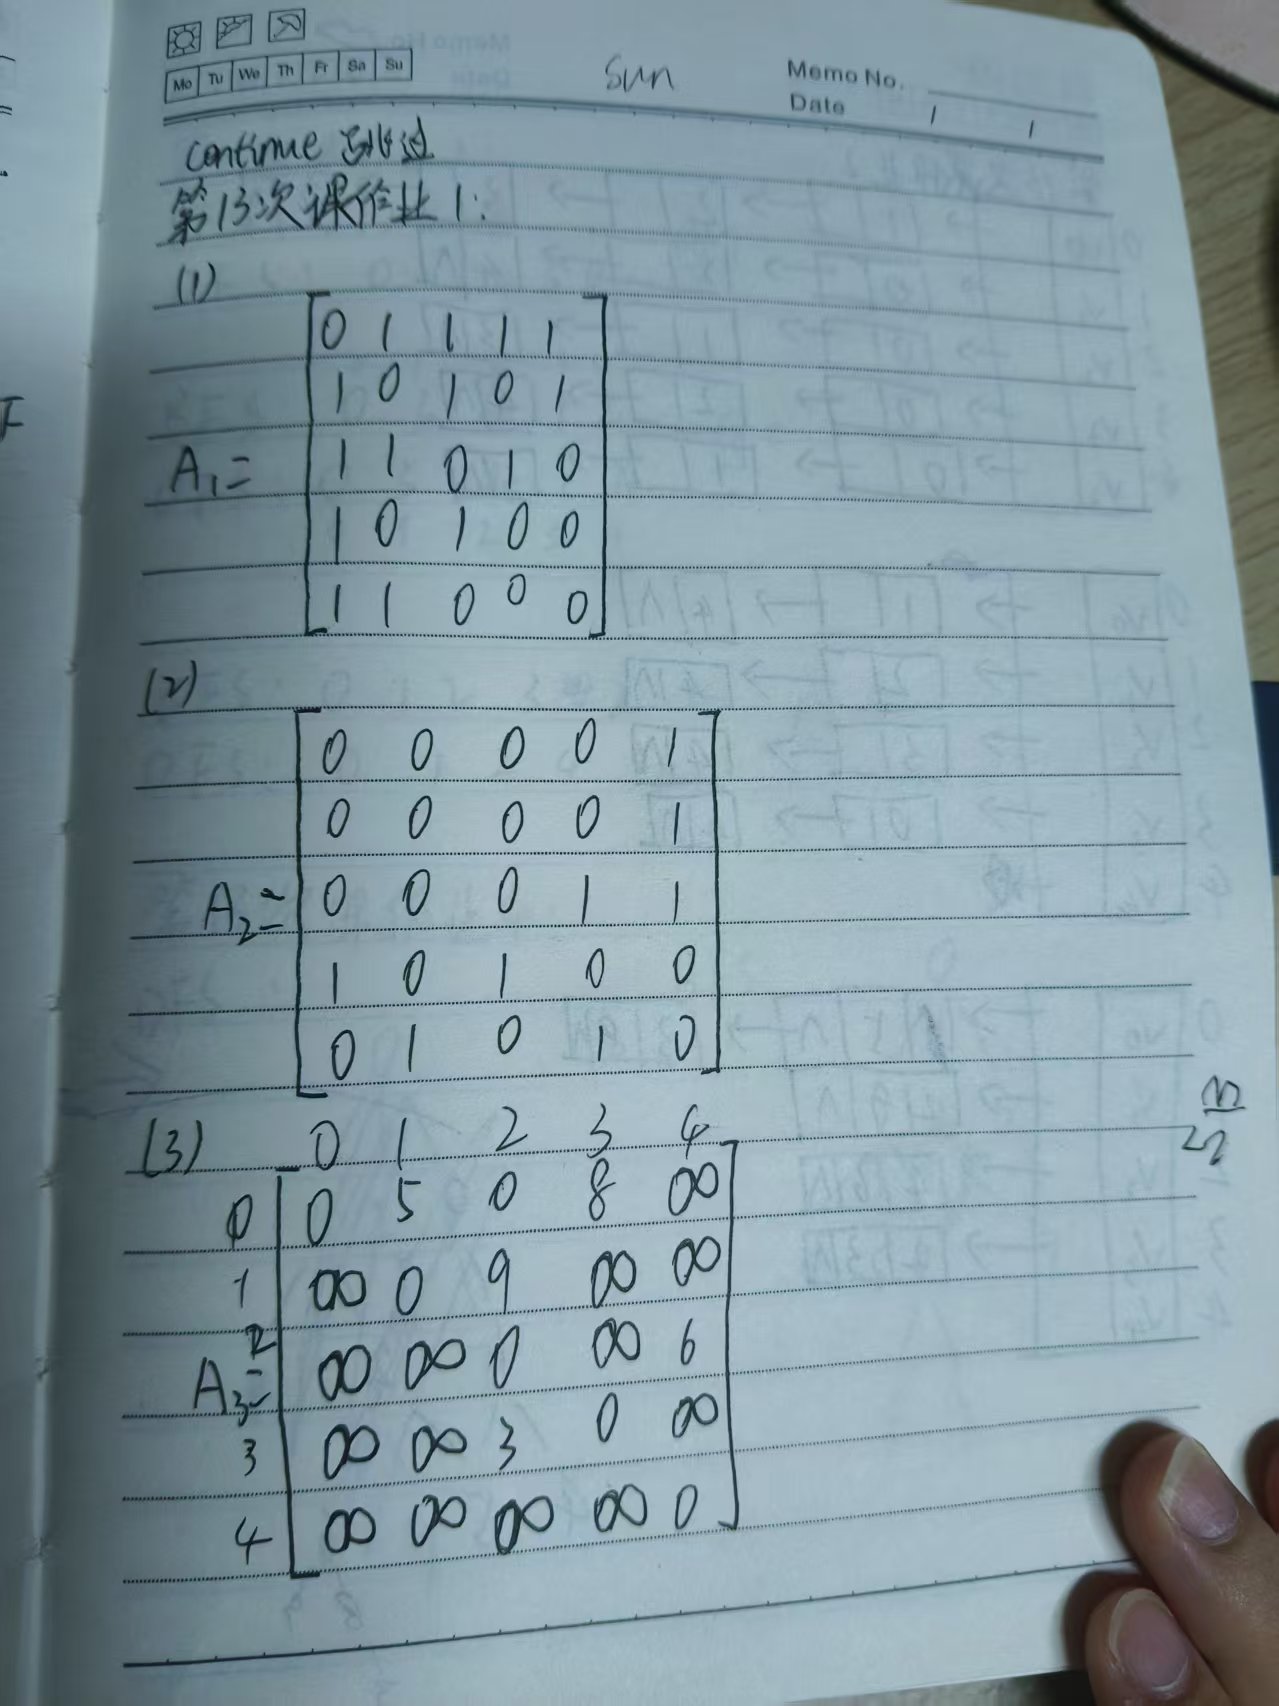 Mo Tu We Th Fr Sa Su
sun
Memo No.
Date / /
continue 跳过
第13次课作业1:
(1)
0 1 1 1 1
1 0 1 0 1
A₁= 1 1 0 1 0
1 0 1 0 0
1 1 0 0 0
(2)
0 0 0 0 1
0 0 0 0 1
A₂= 0 0 0 1 1
1 0 1 0 0
0 1 0 1 0
(3) 0 1 2 3 4
0 0 5 0 8 ∞
1 ∞ 0 9 ∞ ∞
A₃= 2 ∞ ∞ 0 ∞ 6
3 ∞ ∞ 3 0 ∞
4 ∞ ∞ ∞ ∞ 0